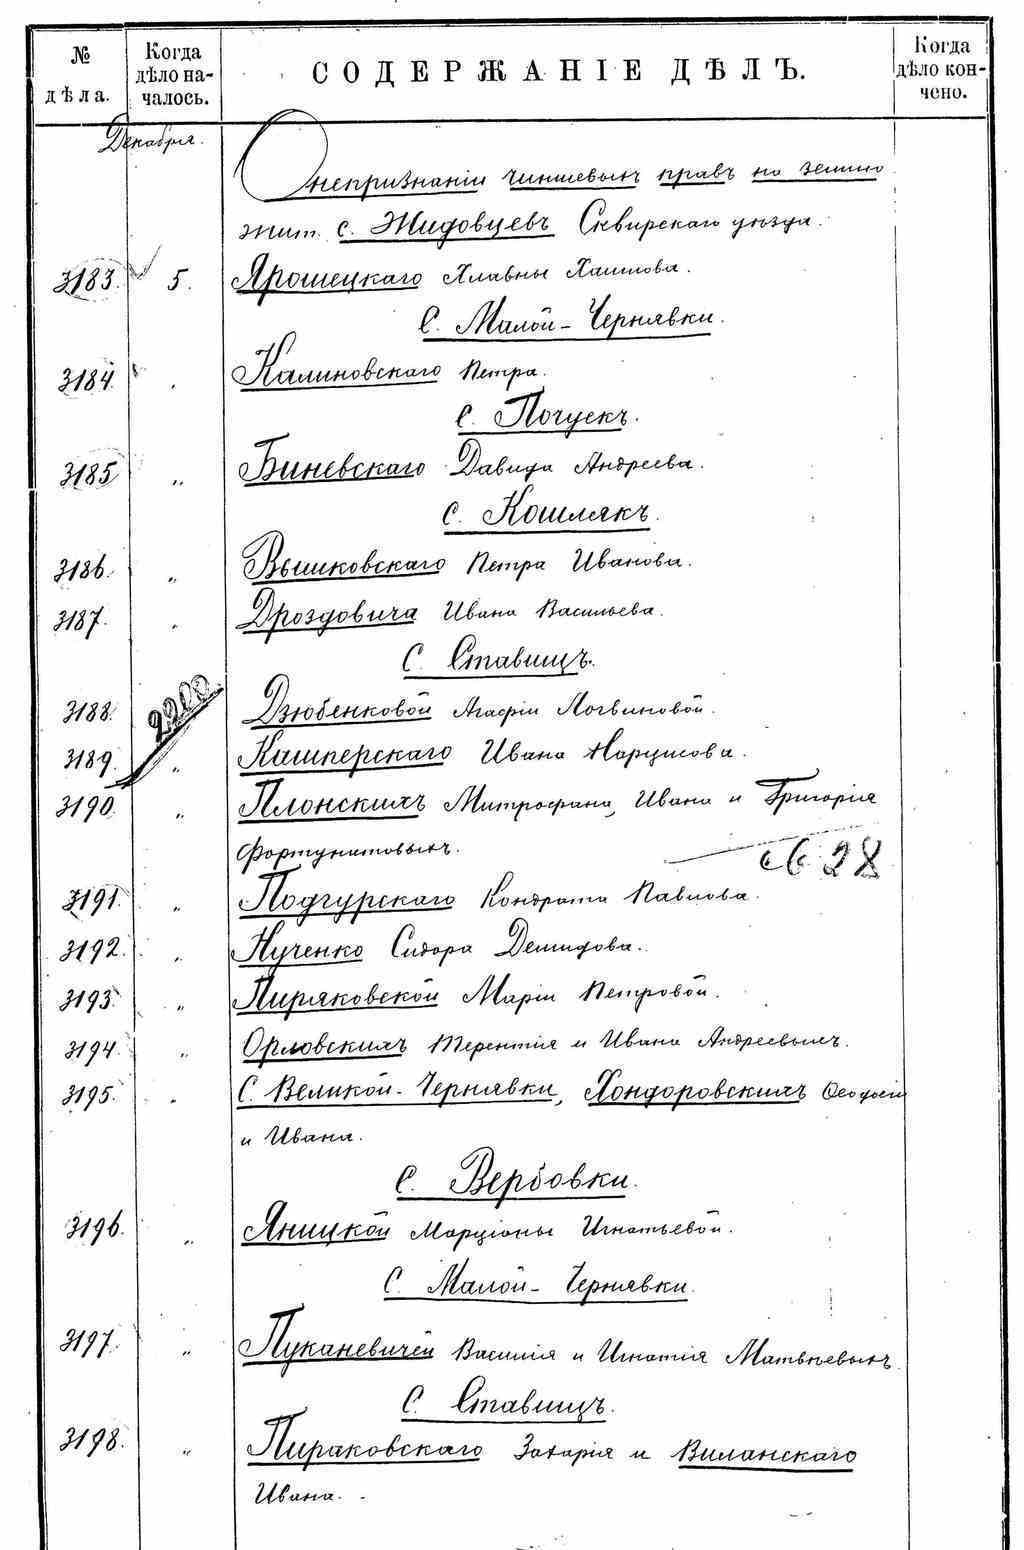 № дѣла. Когда дѣло началось. СОДЕРЖАНІЕ ДѢЛЪ. Когда дѣло кончено.
Декабря.
О непризнаніи чиншевыхъ правъ на землю
жит. с. Жидовцевъ Сквирскаго уѣзда.
3183. 5. Ярошецкаго
С. Малой-Чернявки.
3184. Калиновскаго Петра.
с. Почуекъ.
3185 „ Биневскаго Давида Андреева.
с. Кошлякъ.
3186. „ Вышковскаго Петра Иванова.
3187. „ Дроздовича Ивана Васильева.
С. Ставищъ.
3188. Дзюбенковой Агафіи Логвиновой.
3189. „ Кашперскаго Ивана Нарцисова.
3190. „ Плонскихъ Митрофана, Ивана и Григорія
Фортунатовыхъ.
28
3191. „ Подгурскаго Кондрата Павлова.
3192. „ Нученко Сидора Демидова.
3193. „ Пиряковской Маріи Петровой.
3194. „ Орловскихъ Терентія и Ивана Андреевыхъ.
3195. „ С. Великой-Чернявки, Хондоровскихъ Ѳеодосія
и Ивана.
с. Вербовки.
3196. „ Яницкой Марціоны Игнатьевой.
С. Малой-Чернявки.
3197. „ Луканевичей Василія и Игнатія Матвѣевыхъ.
С. Ставищъ.
3198. „ Пираковскаго Захарія и Виланскаго
Ивана.